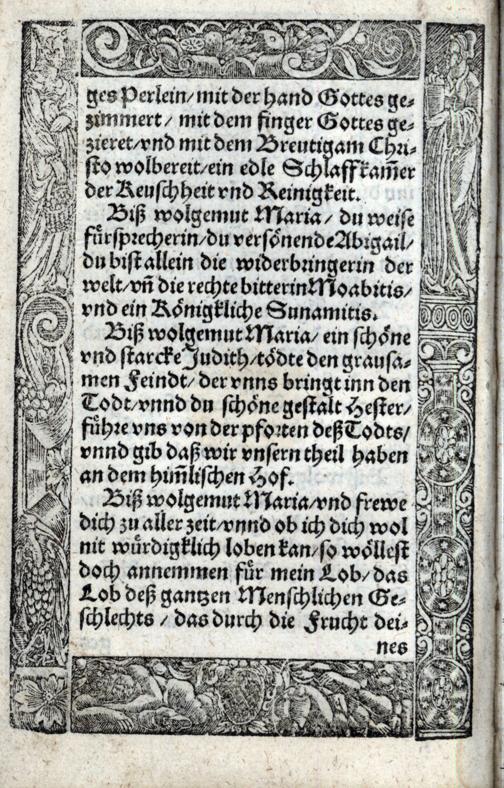 ges Perlein/ mit der hand Gottes ge⸗
zimmert/ mit dem finger Gottes ge⸗
zieret/ vnd mit dem Breutigam Chri⸗
sto wolbereit/ ein edle Schlaffkam̃er
der Keuschheit vnd Reinigkeit.
Biß wolgemut Maria/ du weise
fürsprecherin/ du versönende Abigail/
du bist allein die widerbringerin der
welt/ vñ die rechte bitterin Moabitis/
vnd ein Königkliche Sunamitis.
Biß wolgemut Maria/ ein schöne
vnd starcke Judith/ tödte den grausa⸗
men Feindt/ der vnns bringt inn den
Todt/ vnnd du schöne gestalt Hester/
führe vns von der pforten deß Todts/
vnnd gib daß wir vnsern theil haben
an dem him̃lischen Hof.
Biß wolgemut Maria/ vnd frewe
dich zu aller zeit/ vnnd ob ich dich wol
nit würdigklich loben kan/ so wöllest
doch annemmen für mein Lob/ das
Lob deß gantzen Menschlichen Ge⸗
schlechts/ das durch die Frucht dei⸗
nes